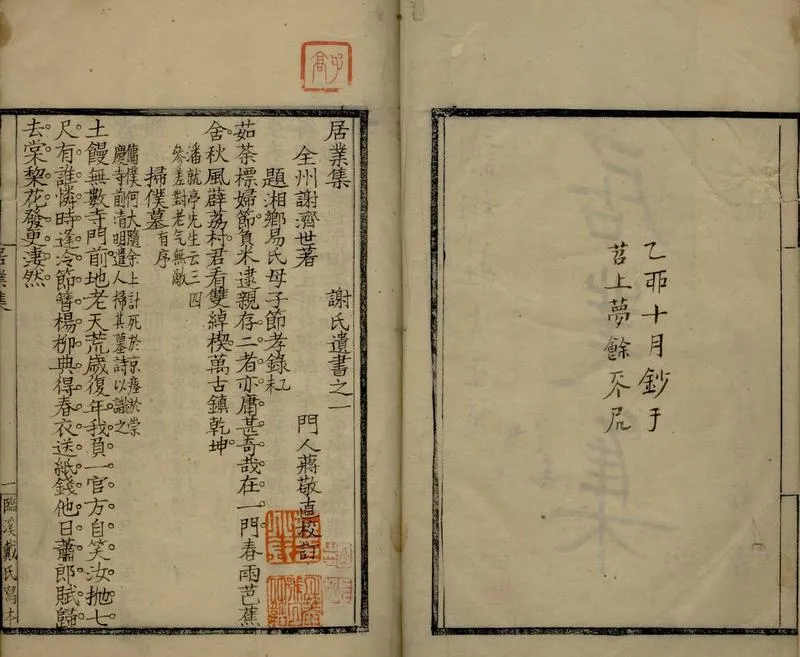 乙丣十月鈔于
苕上夢餘
子高
居業集 謝氏遺書之一
全州謝濟世著 門人蔣敬直校訂
題湘鄉易氏母子節孝錄
茹荼標婦節負米逮親存二者亦庸甚奇哉在一門春雨芭蕉
舍秋風薜荔村君看雙綽楔萬古鎮乾坤
潘就亭先生云三四
參差對老气無敵
掃僕墓有序
傭僕何大隨余上計死於京瘞於崇
慶寺前清明遣人掃其墓詩以識之
土饅無數寺門前地老天荒歲復年我負一官方自笑汝拋七
尺有誰憐時逢冷節簪楊柳典得春衣送紙錢他日蕭郎賦歸
去棠棃花發更淒然
居業集 一 臨溪戴氏寫本